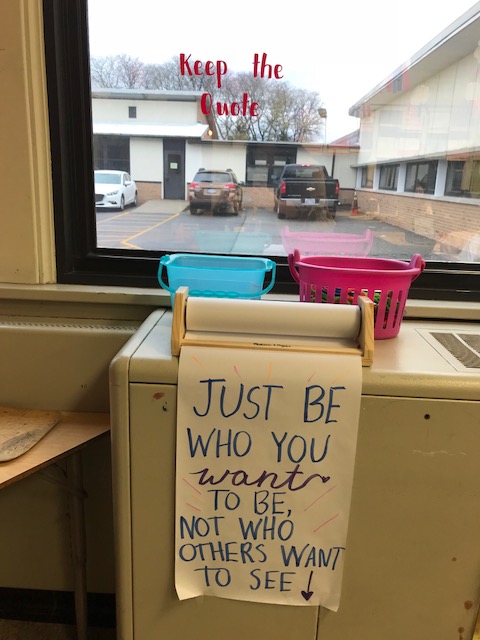 Keep the
Quote
JUST BE
WHO YOU
want
TO BE,
NOT WHO
OTHERS WANT
TO SEE